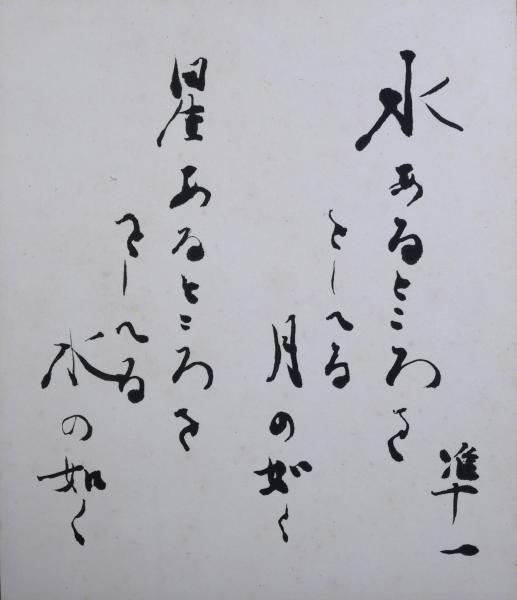 水あるところを
をしへる
月の如く
星あるところを
をしへる
水の如く
凖一